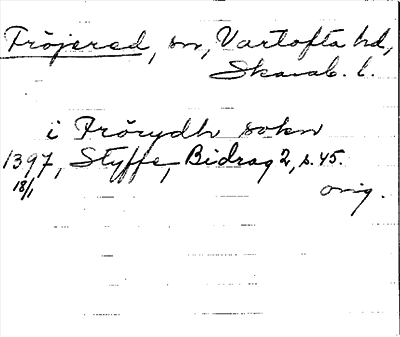 Fröjered, sn, Vartofta hd,
Skarab. l.
i Frörydh sokn
1397, Styffe, Bidrag 2, s. 45.
18/1
orig.